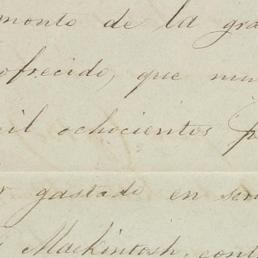 monto de la gra
ofrecido, que nun
il ochocientos p
gastado en ser
Mackintosh, cont